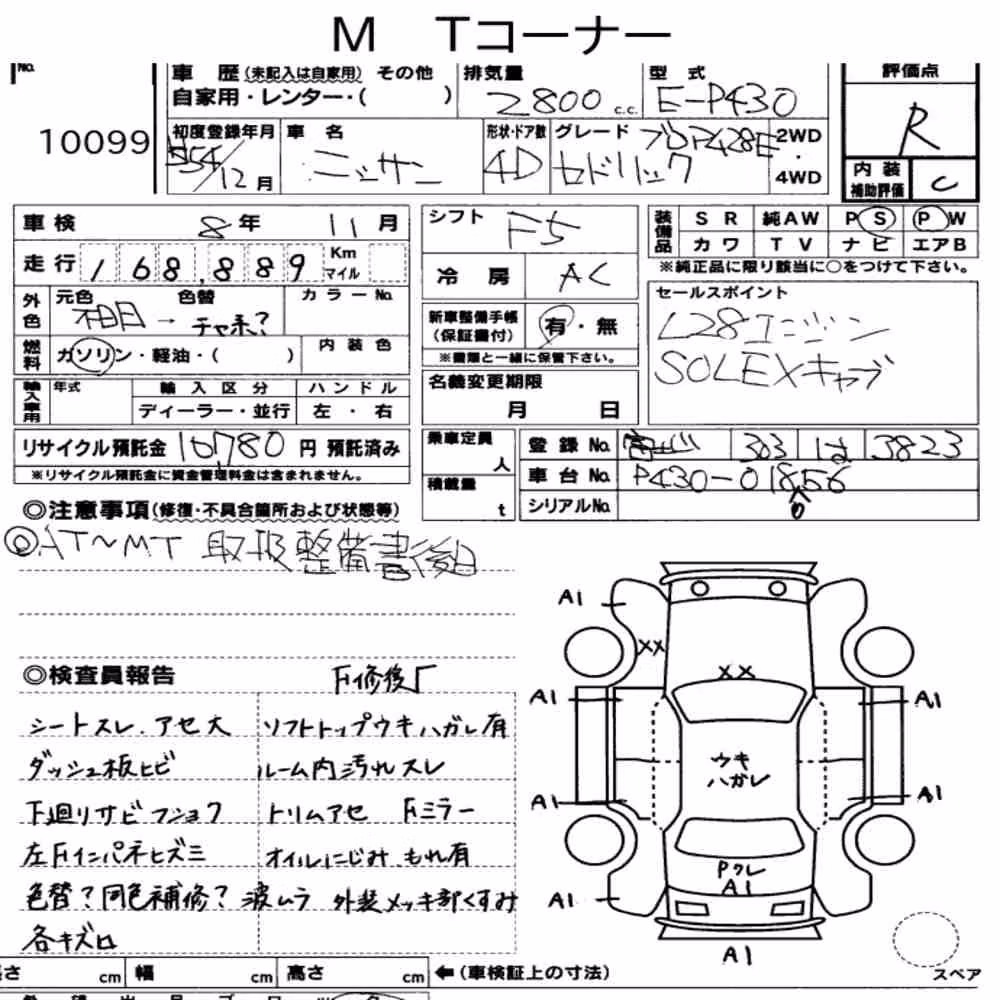 M Tコーナー
No.
10099
車歴(未記入は自家用) その他
自家用・レンター・( )
排気量
2800 c.c.
型式
E-P430
評価点
R
内装
補助評価
C
初度登録年月
S54/12月
車名
ニッサン
形状・ドア数
4D
グレード
セドリック
2WD
・
4WD
車検 8年 11月
走行 168,889 Km
マイル
外色
元色 色替
紺 → チャ系?
カラーNo.
燃料
ガソリン・軽油・( )
内装色
輸入車用
年式
輸入区分
ディーラー・並行
ハンドル
左・右
リサイクル預託金 10780 円 預託済み
※リサイクル預託金に資金管理料金は含まれません。
シフト
F5
冷房
AC
新車整備手帳
(保証書付)
有・無
※書類と一緒に保管下さい。
名義変更期限
月 日
乗車定員
人
積載量
t
装備品
SR 純AW PS PW
カワ TV ナビ エアB
※純正品に限り該当に○をつけて下さい。
セールスポイント
L28エンジン
SOLEXキャブ
登録No. 303 は 3823
車台No. P430-01856
0
シリアルNo.
◎注意事項(修復・不具合箇所および状態等)
◎AT~MT 取扱整備書後日
◎検査員報告
F修復
シートスレ.アセ大
ソフトトップウキハガレ有
ダッシュ板ヒビ
ルーム内汚れスレ
下廻りサビフショク
トリムアセ Fミラー
左Fインパネヒズミ
オイルにじみ もれ有
色替?同色補修? 波ムラ 外装メッキ部くすみ
各キズロ
A1
XX
XX
A1
A1
ウキ
ハガレ
A1
A1
Pクレ
A1
A1
A1
スペア
cm 幅 cm 高さ cm
←(車検証上の寸法)